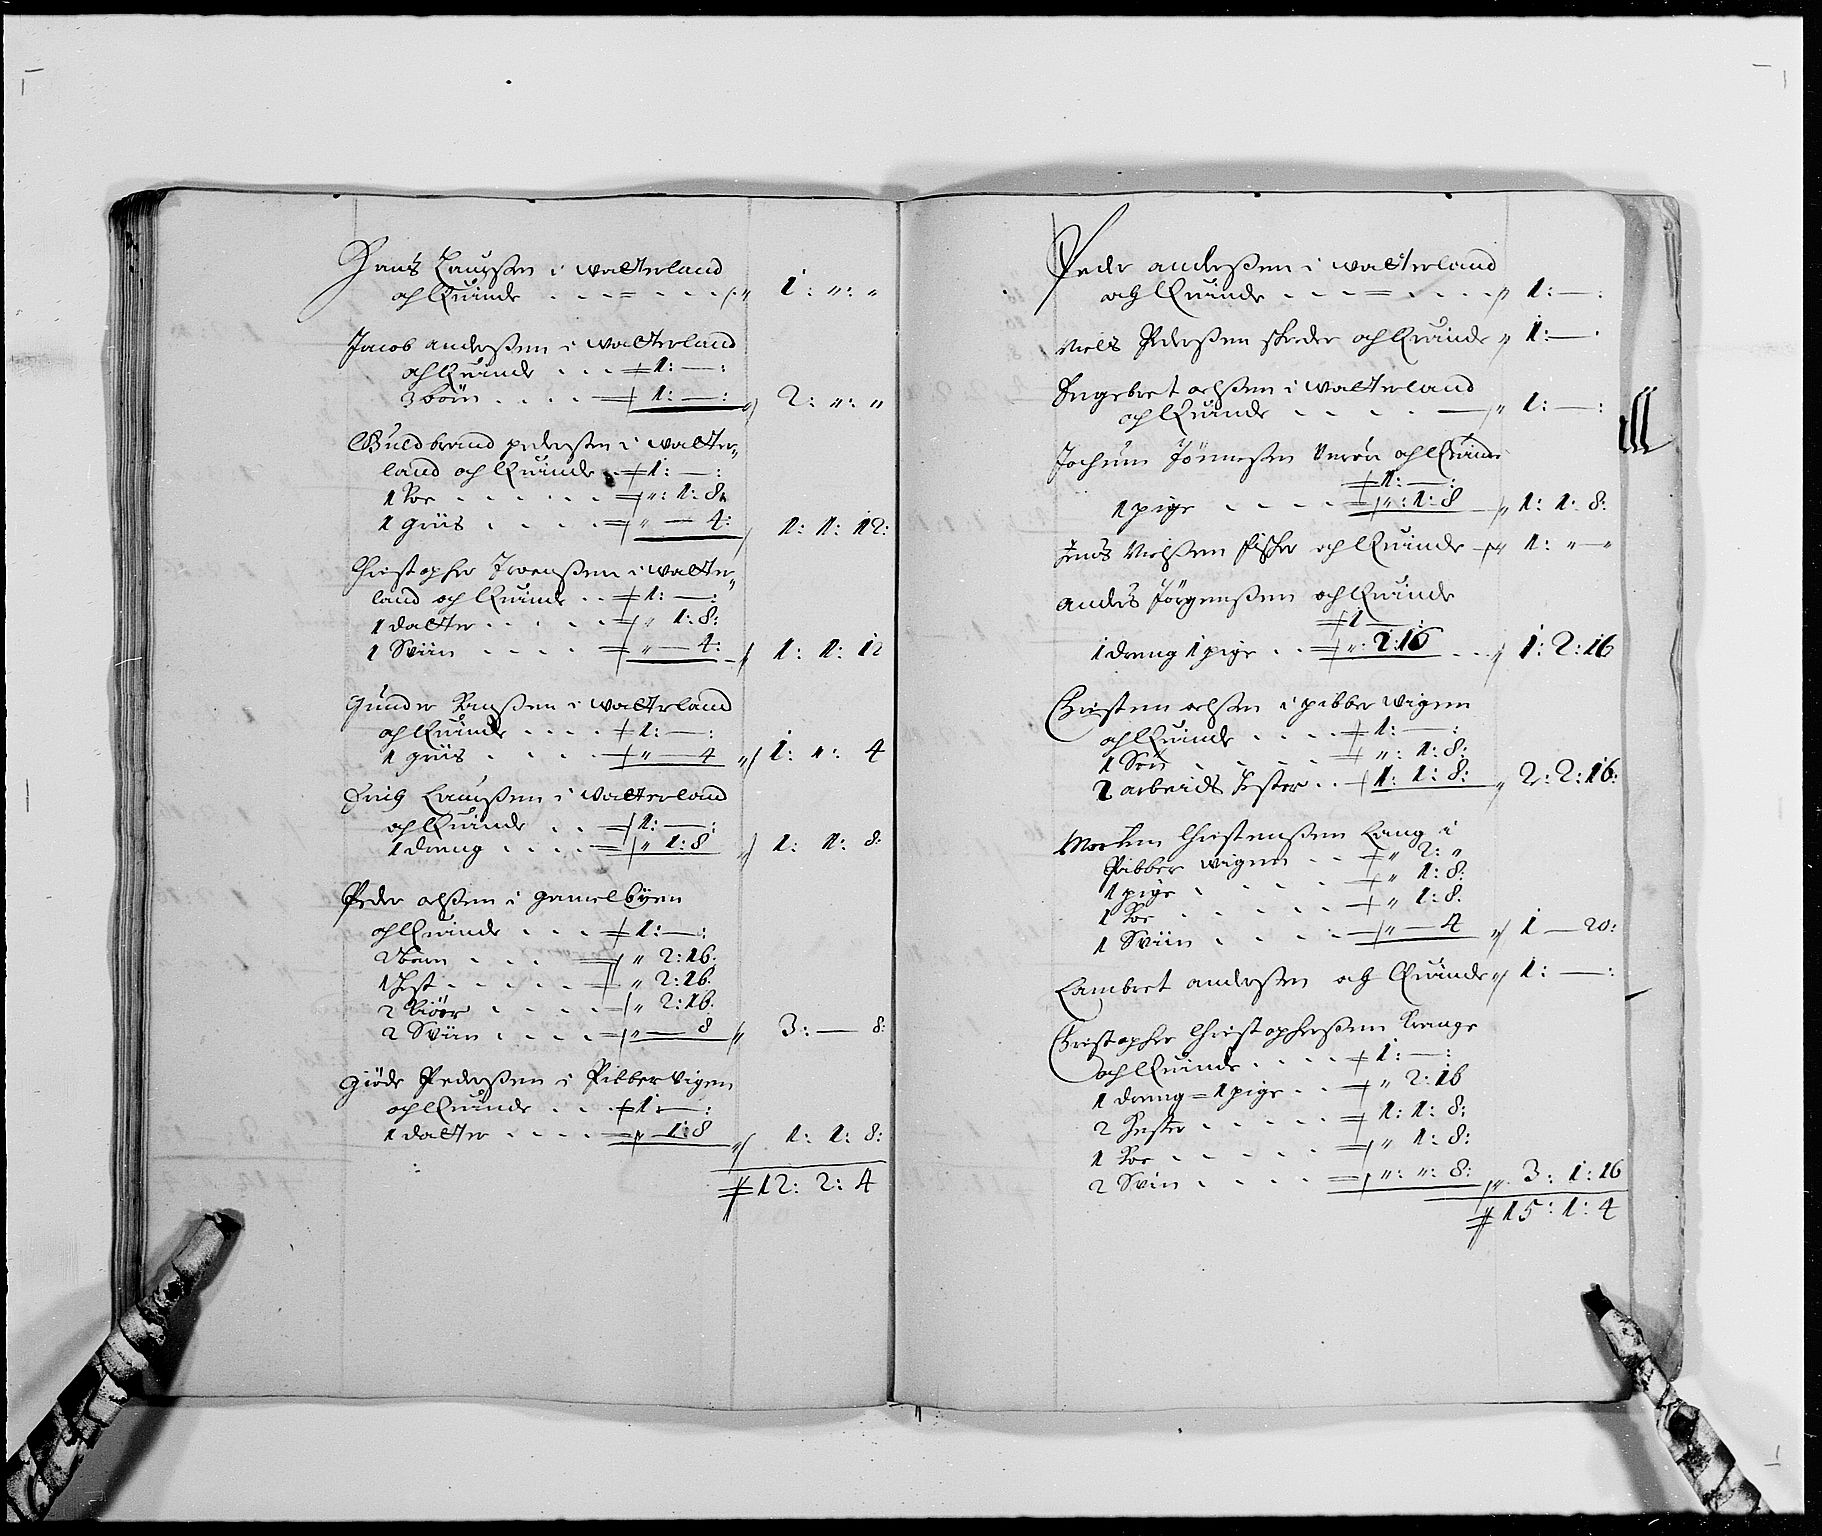 Hans Laurßen i Walterland
och Quinde . . . 1: „: „
Jacob andersßen i Walterland
och Quinde . . . 1: — :
3 börn . . . . 1: — : 2: „: „
Guldbrand pedersßen i Walter„
land och Quinde . 1: — :
1 Koe . . . . . „: 1: 8:
1 griis . . . . „ — 4: 1: 1: 12:
Christopher Iversßen i Walter„
land och Quinde . . 1: — :
1 dotter . . . . . „ 1: 8:
1 Sviin . . . . „ — 4: 1: 1: 12
Gunder Hansßen i Walterland
och Quinde . . . . 1: — :
1 griis . . . . „ — 4 1: „: 4
Erich Laurßen i Walterland
och Quinde . . 1: — :
1 dreng . . . . „ 1: 8 1: 1: 8:
Peder olsßen i gamelbÿen
och Quinde . . . 1: — :
2 börn . . . . „ 2: 16:
1 Hest . . . . . „ 2: 16:
2 Kiöer . . . . „ 2: 16:
2 Sviin . . . . „ — 8 3: — 8:
Giöde Pedersßen i Pibbervigen
och Quinde . . . 1: — :
1 dotter . . . . „ 1: 8 1: 1: 8:
12: 2: 4
Peder andersßen i Walterland
och Quinde . . . 1: — :
Niels Pedersßen schreder och Quinde „ 1: — :
Engebret olsßen i Walterland
och Quinde . . . . „ 1: — :
Jochum Jönnesßen och Quinde
1: — :
1 pige . . . . „: 1: 8 1: 1: 8:
Jens Nielsßen fischer och Quinde 1: „ — „
Anders Jörgensßen och Quinde
1 — :
1 dreng 1 pige . . „: 2: 16 1: 2: 16
Christen olsßen i pibber wigen
och Quinde . . . . 1: — :
1 Sön . . . . „: 1: 8:
2 arbeids Hester . . 1: 1: 8: 2: 2: 16:
Morten Christensßen Lang i
Pibber wigen . . „ 2: „
1 pige . . . . „ 1: 8:
1 Koe . . . . „ 1: 8:
1 Sviin . . . . „ — 4 1 — 20:
Lambret andersßen och Quinde „ 1: — :
Christopher Christophersßen Krange
och Quinde . . . . 1: — :
1 dreng = 1 pige . . „ 2: 16
2 Hester . . . . . 1: 1: 8:
1 Koe . . . . . „ 1: 8:
2 Sviin . . . . „: „: 8: „ 3: 1: 16
15: 1: 4